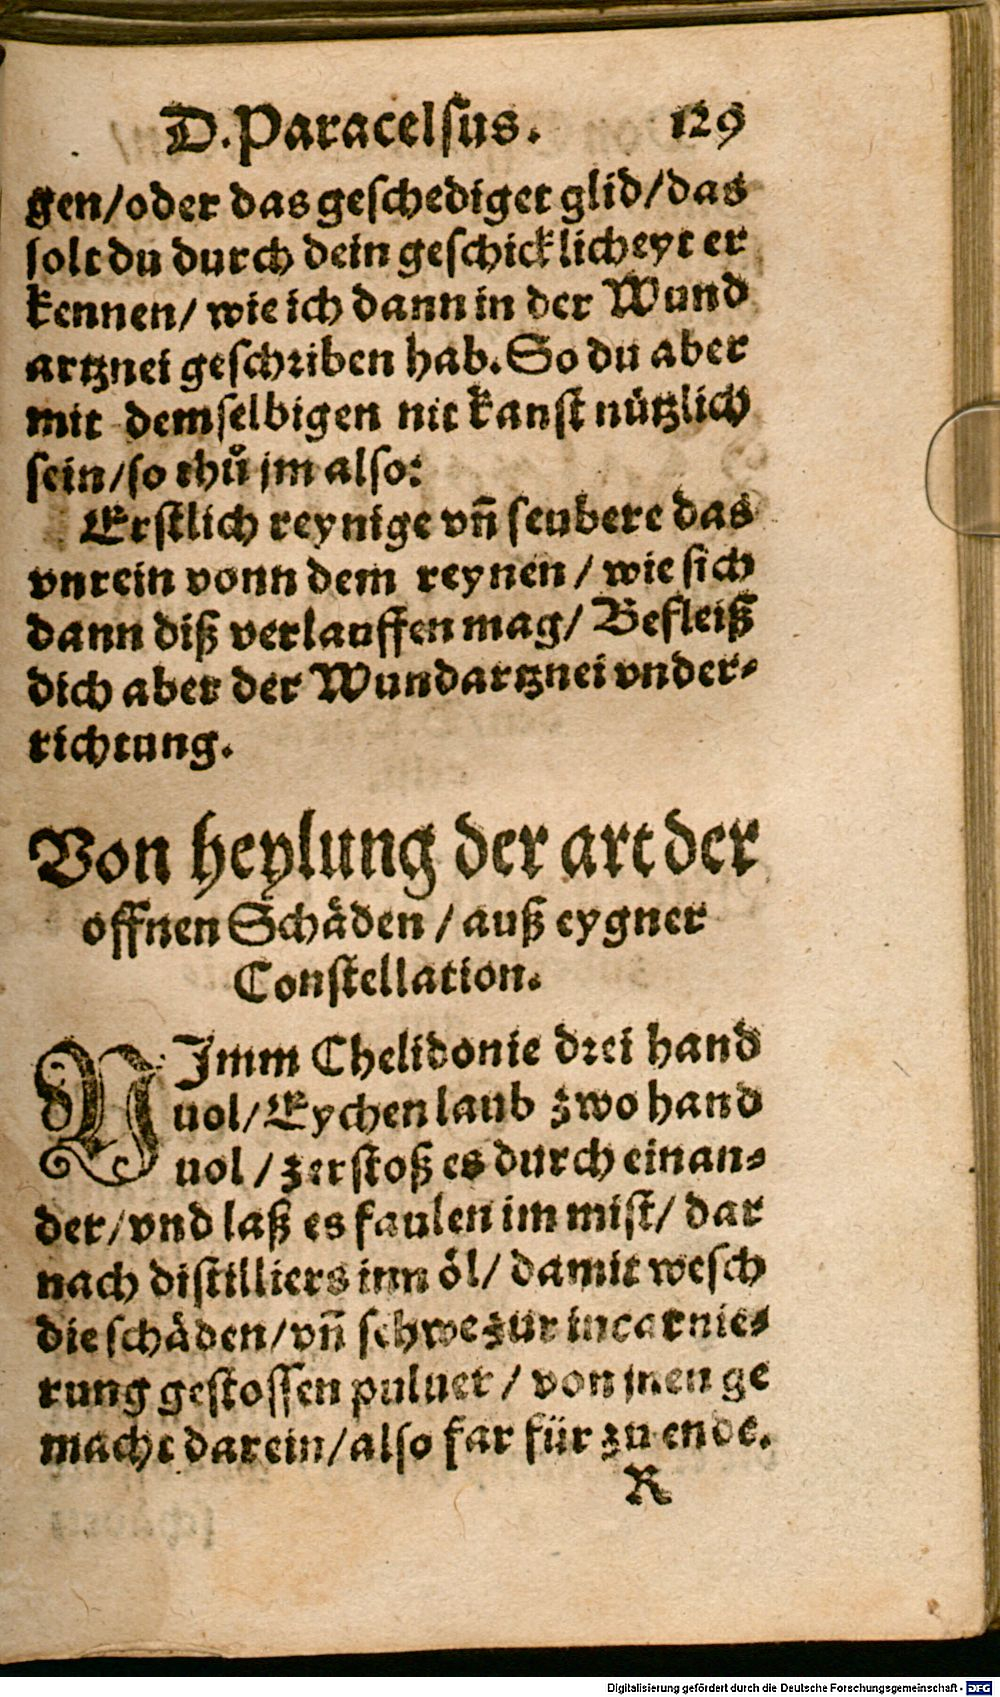 D. Paracelsus. 129
gen/oder das geschediget glid/das
solt du durch dein geschicklicheyt er
kennen/ wie ich dann in der Wund
artznei geschriben hab. So du aber
mit demselbigen nit kanst nützlich
sein/so thů jm also:
Erstlich reynige vñ seubere das
vnrein vonn dem reynen/ wie sich
dann diß verlauffen mag/ Befleiß
dich aber der Wundartznei vnder-
richtung.
Von heylung der art der
offnen Schäden/auß eygner
Constellation.
NJmm Chelidonie drei hand
uol/Eychenlaub zwo hand
uol/zerstoß es durch einan-
der/vnd laß es faulen im mist/ dar
nach distilliers inn öl/ damit wesch
die schäden/vñ schwe zur incarnie-
rung gestossen puluer/ von jnen ge
macht darein/also far für zu ende.
R
Digitalisierung gefördert durch die Deutsche Forschungsgemeinschaft - DFG